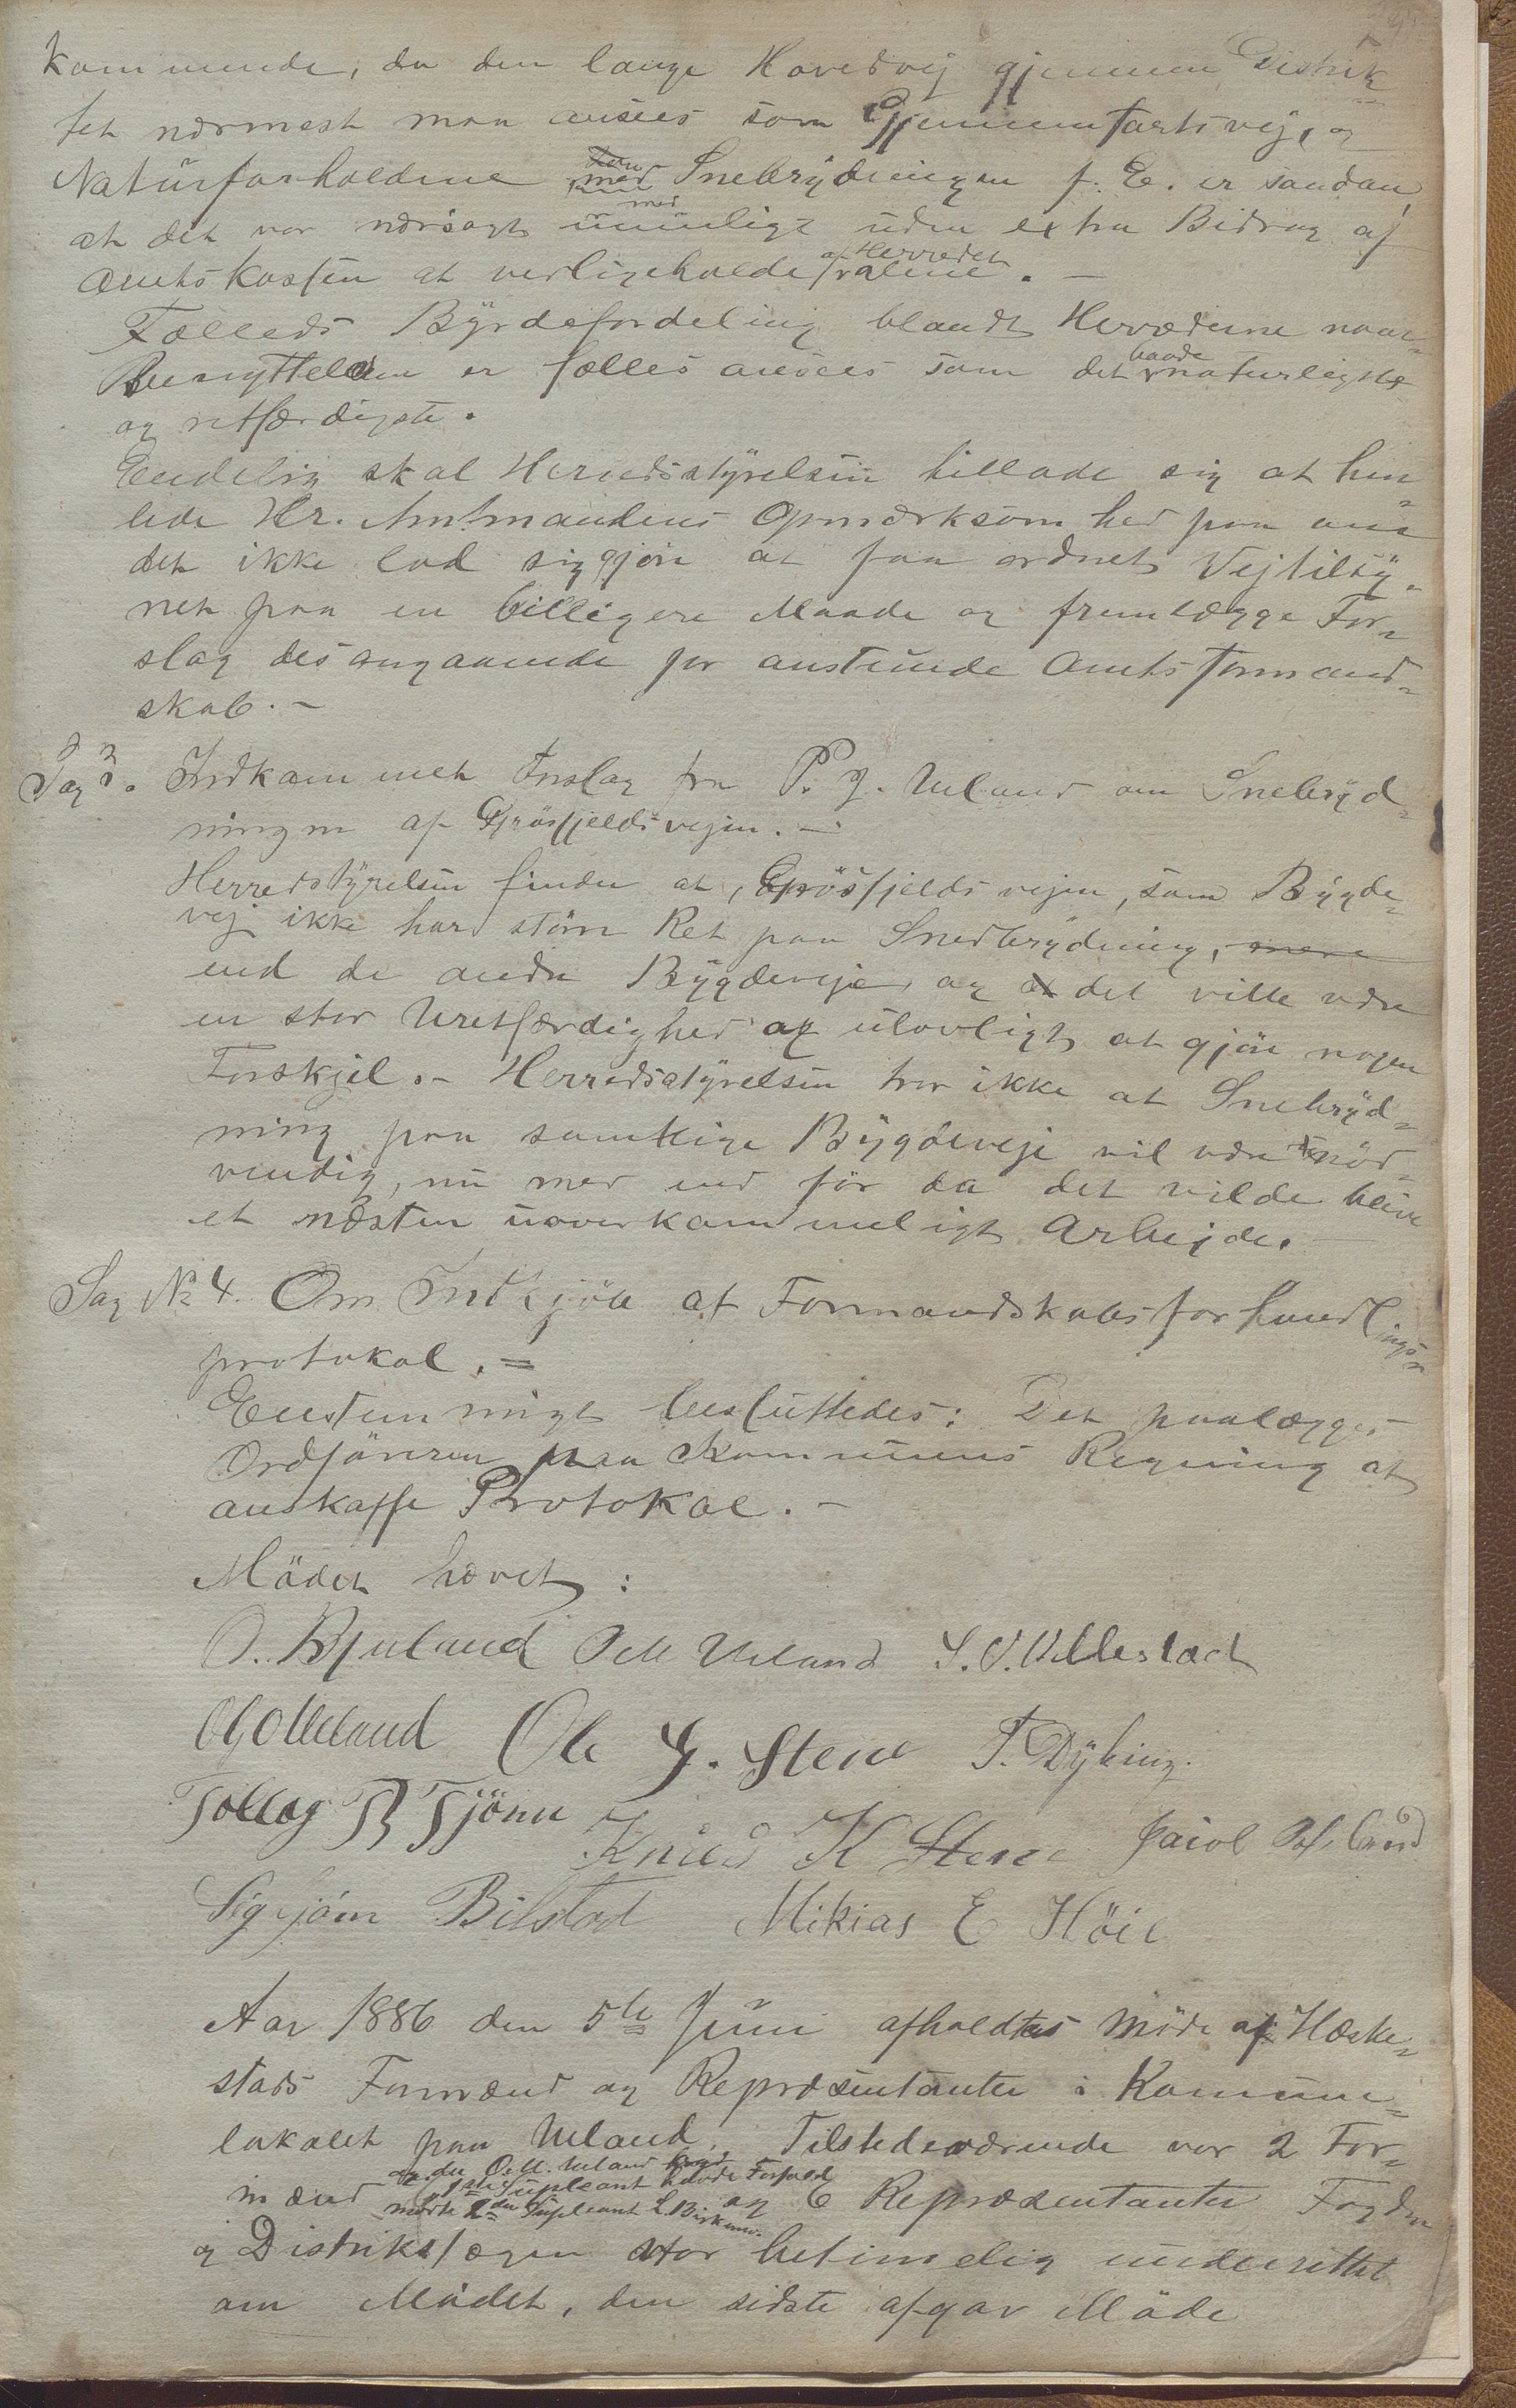 kommende, da den lange Hovedvej gjennem Distrik-
tet nærmest maa ansees som Gjennemfartsvej, og
Naturforholdene med Snebrydningen f. E. er saadan,
at det var nærsagt umuligt uden extra Bidrag af
Amtskassen at vedligeholde af Herredet alene. —
Fælleds Byrdefordeling blandt Herrederne naar
Benyttelsen er fælles ansees som det baade naturligste
og retfærdigste.
Endelig skal Herredsstyrelsen tillade sig at hen-
lede Hr. Amtmandens Opmærksomhed paa om
det ikke lod sig gjøre at faa ordnet Vejtilsy-
net paa en billigere Maade og fremlægge For-
slag desangaaende for anstunde Amtsformand-
skab. —
Sag 3. Indkommet Forslag fra P. J. Ueland om Snebryd-
ningen af Gjrösfjeldsvejen. —
Herredsstyrelsen finder at, Gjrösfjeldsvejen, som Bygde-
vej ikke har större Ret paa Snebrydning, mere
end de andre Bygdeveje, og at det ville være
en stor Uretfærdighed og ulovligt at gjöre nogen
Forskjel. — Herredsstyrelsen tror ikke at Snebryd-
ning paa samtlige Bygdeveje vil være nöd-
vendig, nu mer end för da det vilde blive
et næsten uoverkommeligt Arbejde. —
Sag № 4. Om Indkjöb af Formandskabsforhandlings-
protokol. =
Eenstemmigt besluttedes: Det paalægges
Ordföreren paa Kommunens Regning at
anskaffe Protokol. —
Mödet hævet:
O. Bjuland O M Ueland S. O. Ollestad
O G Ueland Ole G. Stene T. Dybing.
Tollag B Tjönn Knud K Stene Jacob
Sigbjörn Bilstad Mikias E Höie
Aar 1886 den 5te Juni afholdtes Möde af Hæske-
stads Formænd og Repræsentanter i Kommune-
lokalet paa Ueland. Tilstedeværende var 2 For-
da O. M. Ueland
1ste Supleant havde Forfald
mænd mödte 2den Supleant L. Birkemo. og 6 Repræsentanter Fogden
og Distriktslægen var betimelig underrettet
om Mödet, den sidste afgav Möde